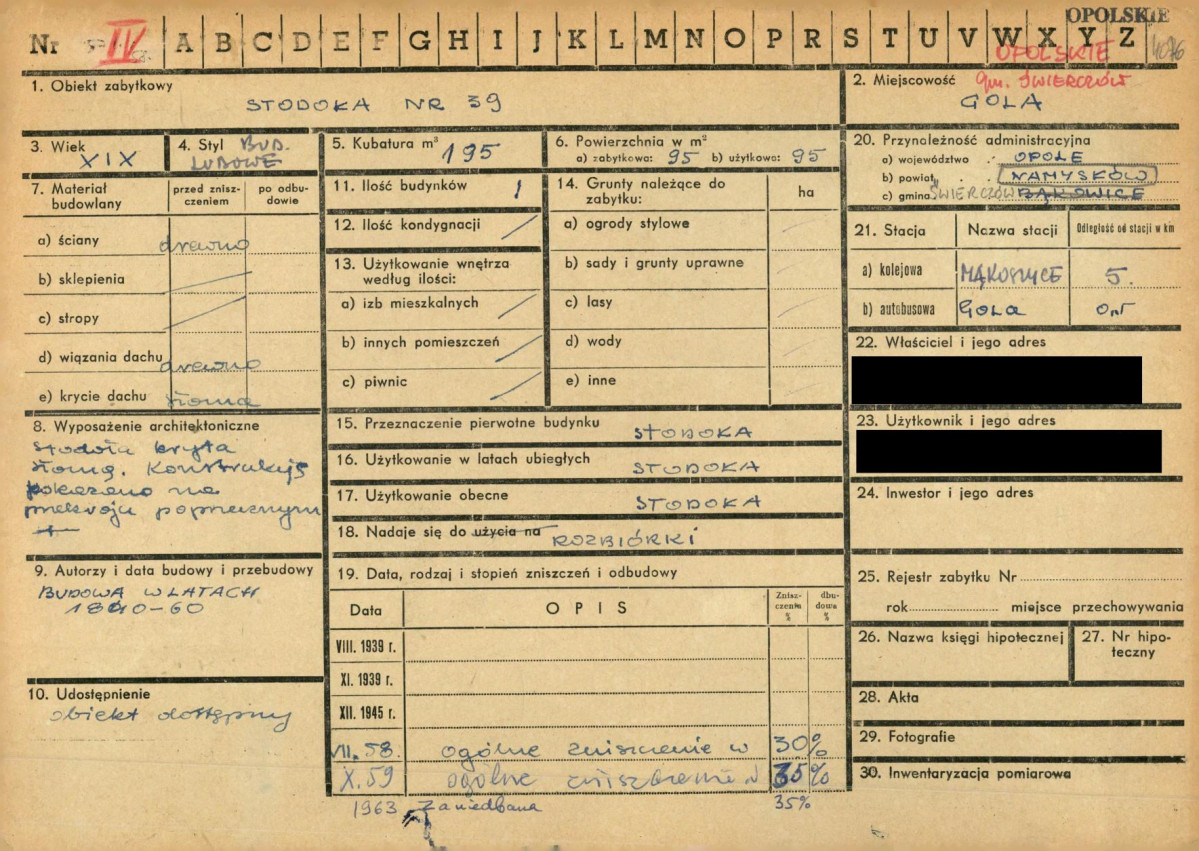 OPOLSKIE
Nr IV A B C D E F G H I J K L M N O P R S T U V W X Y Z 4096
OPOLSKIE
1. Obiekt zabytkowy
STODOŁA NR 39
2. Miejscowość gm. ŚWIERCZÓW
GOLA
3. Wiek XIX
4. Styl BUD. LUDOWE
5. Kubatura m³ 195
6. Powierzchnia w m²
a) zabytkowa: 95 b) użytkowa: 95
20. Przynależność administracyjna
a) województwo OPOLE
b) powiat NAMYSŁÓW
c) gmina ŚWIERCZÓW BĄKOWICE
7. Materiał budowlany
przed zniszczeniem
po odbudowie
a) ściany drewno
b) sklepienia
c) stropy
d) wiązania dachu drewno
e) krycie dachu słoma
11. Ilość budynków 1
12. Ilość kondygnacji
13. Użytkowanie wnętrza według ilości:
a) izb mieszkalnych
b) innych pomieszczeń
c) piwnic
14. Grunty należące do zabytku:
ha
a) ogrody stylowe
b) sady i grunty uprawne
c) lasy
d) wody
e) inne
21. Stacja Nazwa stacji Odległość od stacji w km
a) kolejowa MĄKOSZYCE 5.
b) autobusowa GOLA 0,5
22. Właściciel i jego adres
23. Użytkownik i jego adres
8. Wyposażenie architektoniczne
Stodoła kryta
słomą. Konstrukcję
pokazano na
przekroju poprzecznym
15. Przeznaczenie pierwotne budynku STODOŁA
16. Użytkowanie w latach ubiegłych STODOŁA
17. Użytkowanie obecne STODOŁA
18. Nadaje się do użycia na ROZBIÓRKI
24. Inwestor i jego adres
9. Autorzy i data budowy i przebudowy
BUDOWA W LATACH
1840-60
19. Data, rodzaj i stopień zniszczeń i odbudowy
Data OPIS Zniszczenia % dbudowa %
VIII. 1939 r.
XI. 1939 r.
XII. 1945 r.
VII. 58. ogólne zniszczenie w 30%
X. 59 ogólne zniszczenie w 35%
1963 Zaniedbana 35%
25. Rejestr zabytku Nr
rok miejsce przechowywania
26. Nazwa księgi hipotecznej
27. Nr hipoteczny
10. Udostępnienie
obiekt dostępny
28. Akta
29. Fotografie
30. Inwentaryzacja pomiarowa